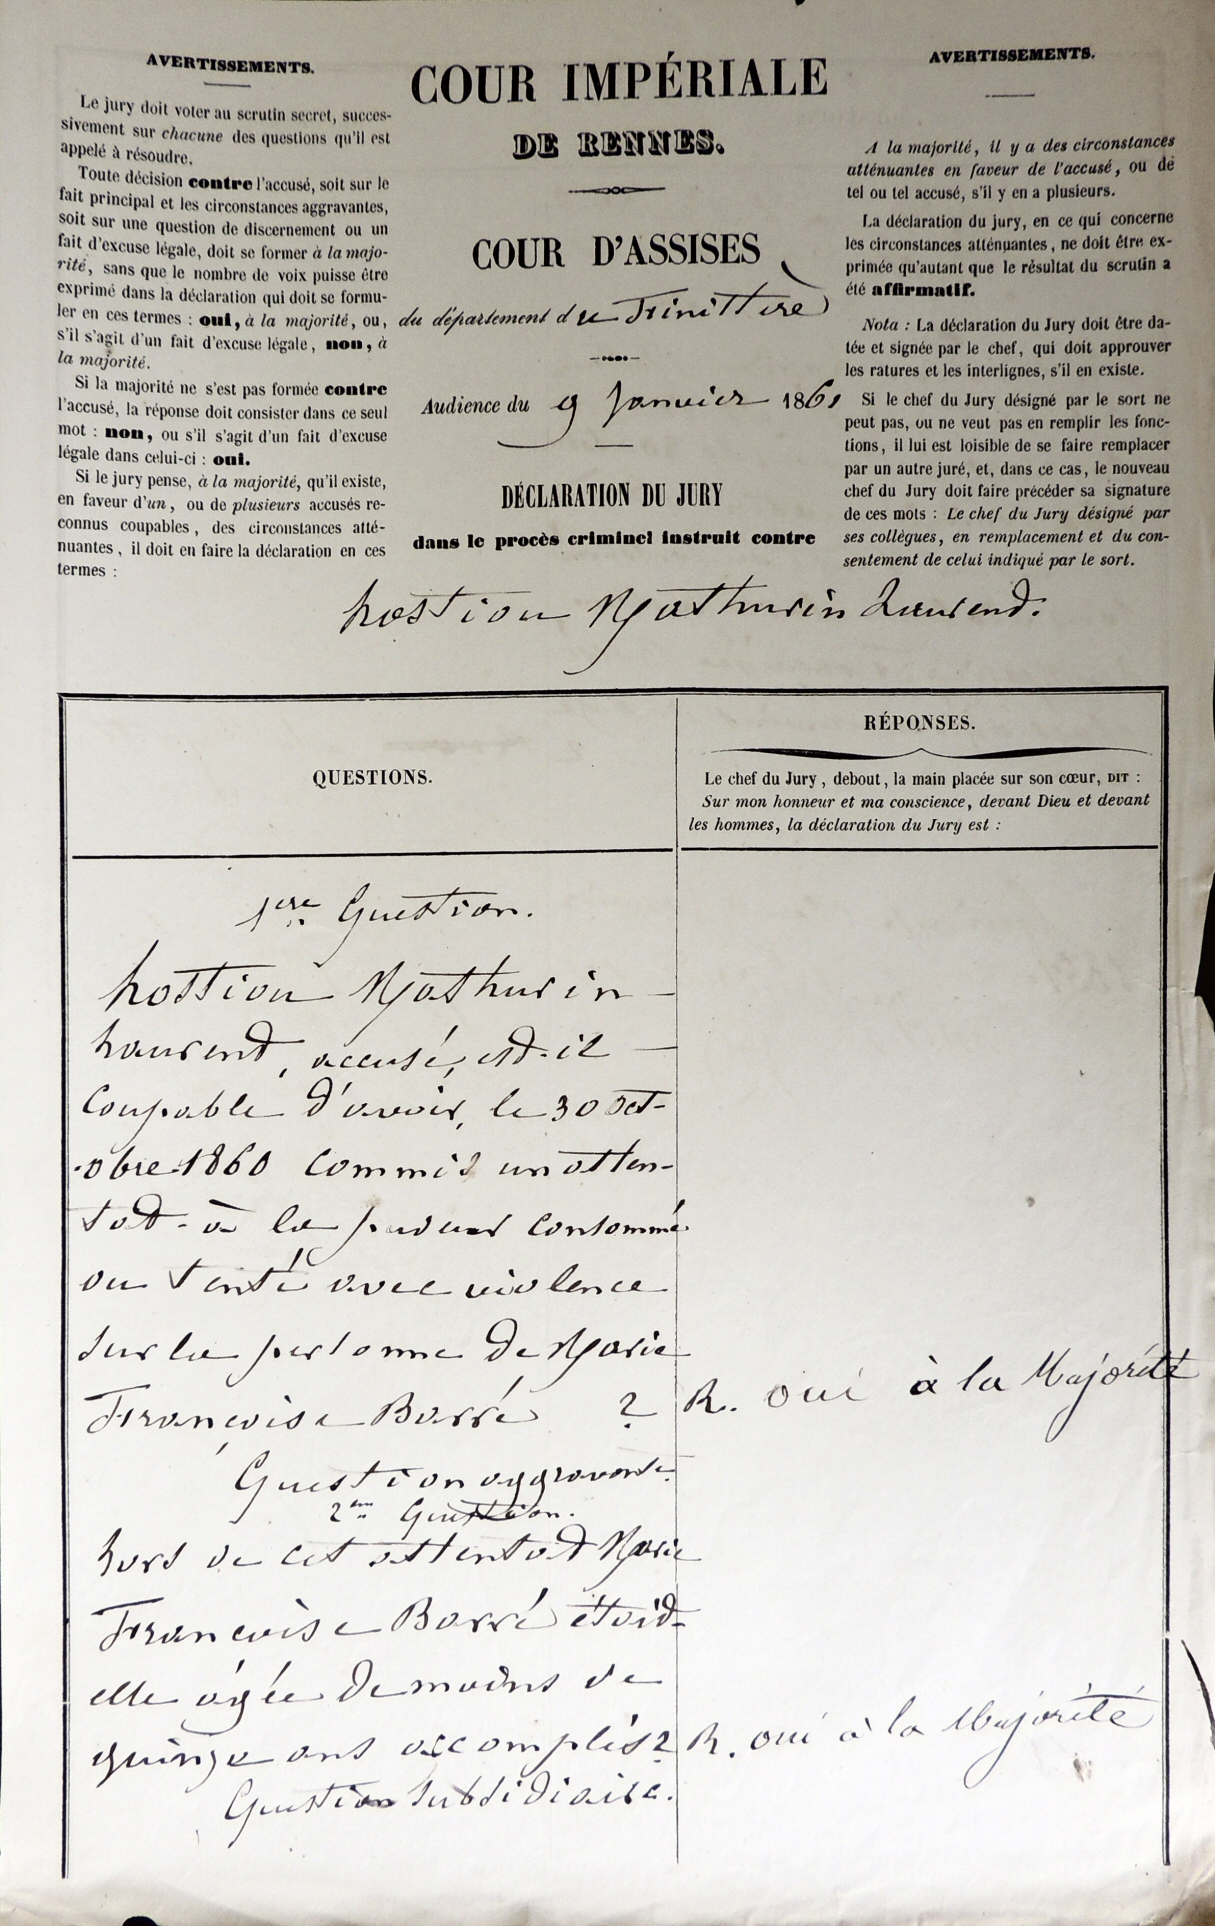 AVERTISSEMENTS.
Le jury doit voter au scrutin secret, succes-
sivement sur chacune des questions qu'il est
appelé à résoudre.
Toute décision contre l'accusé, soit sur le
fait principal et les circonstances aggravantes,
soit sur une question de discernement ou un
fait d'excuse légale, doit se former à la majo-
rité, sans que le nombre de voix puisse être
exprimé dans la déclaration qui doit se formu-
ler en ces termes : oui, à la majorité, ou,
s'il s'agit d'un fait d'excuse légale, non, à
la majorité.
Si la majorité ne s'est pas formée contre
l'accusé, la réponse doit consister dans ce seul
mot : non, ou s'il s'agit d'un fait d'excuse
légale dans celui-ci : oui.
Si le jury pense, à la majorité, qu'il existe,
en faveur d'un, ou de plusieurs accusés re-
connus coupables, des circonstances atté-
nuantes, il doit en faire la déclaration en ces
termes :
COUR IMPÉRIALE
DE RENNES.
COUR D'ASSISES
du département du Finistère
Audience du 9 Janvier 1861
DÉCLARATION DU JURY
dans le procès criminel instruit contre
AVERTISSEMENTS.
A la majorité, il y a des circonstances
atténuantes en faveur de l'accusé, ou de
tel ou tel accusé, s'il y en a plusieurs.
La déclaration du jury, en ce qui concerne
les circonstances atténuantes, ne doit être ex-
primée qu'autant que le résultat du scrutin a
été affirmatif.
Nota : La déclaration du Jury doit être da-
tée et signée par le chef, qui doit approuver
les ratures et les interlignes, s'il en existe.
Si le chef du Jury désigné par le sort ne
peut pas, ou ne veut pas en remplir les fonc-
tions, il lui est loisible de se faire remplacer
par un autre juré, et, dans ce cas, le nouveau
chef du Jury doit faire précéder sa signature
de ces mots : Le chef du Jury désigné par
ses collègues, en remplacement et du con-
sentement de celui indiqué par le sort.
hostiou Mathurin Laurend.
QUESTIONS.
RÉPONSES.
Le chef du Jury, debout, la main placée sur son cœur, DIT :
Sur mon honneur et ma conscience, devant Dieu et devant
les hommes, la déclaration du Jury est :
1ere Question.
hostiou Mathurin
Laurent, accusé, est-il
Coupable d'avoir, le 30 oct-
obre 1860 commis un atten-
tat à la pudeur consommé
ou tenté avec violence
sur la personne de Marie
Françoise Barré ?
R. oui à la Majorité
Question aggravante.
2eme Question.
Lors de cet attentat Marie
Françoise Barré étoit-
elle âgée de moins de
quinze ans accomplis ?
R. oui à la Majorité
Question subsidiaire.